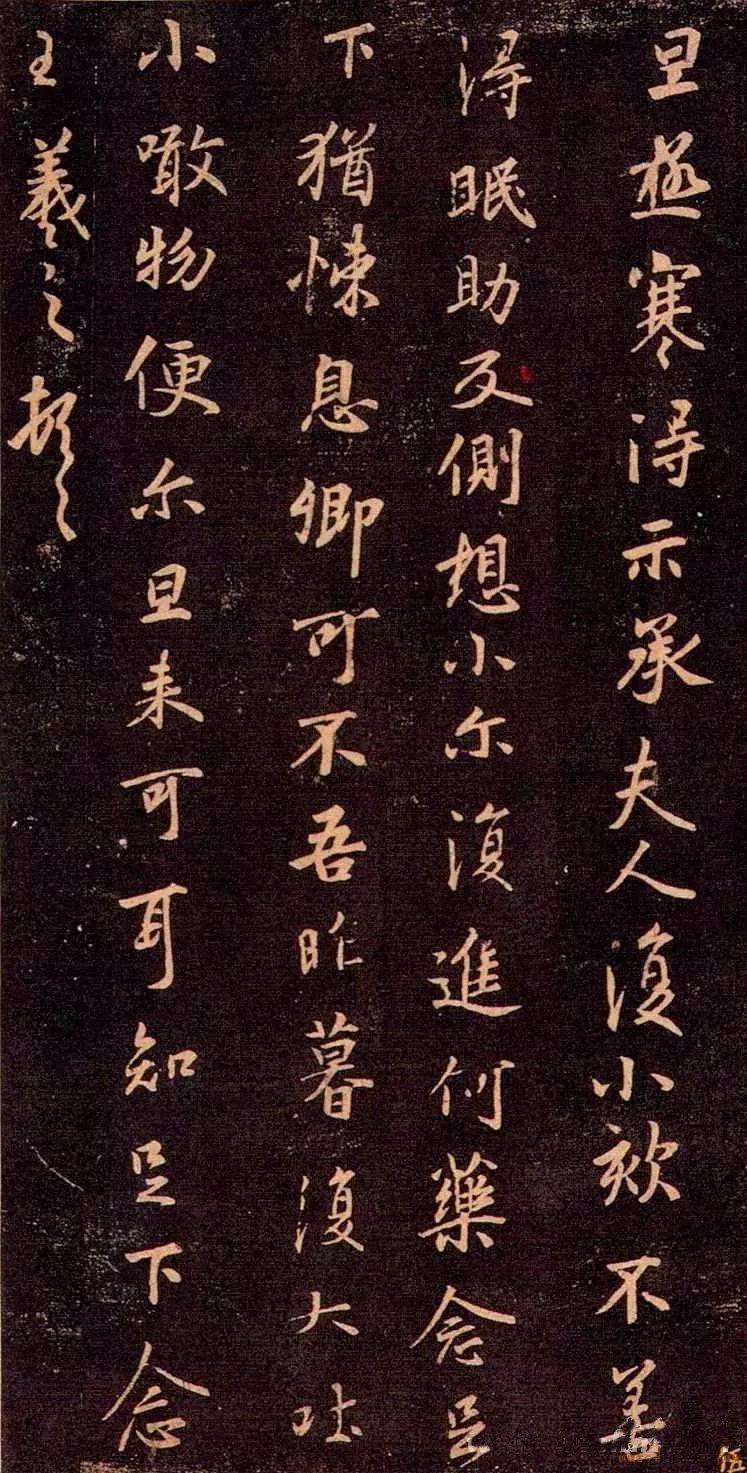 旦極寒得示承夫人復小欬不善
得眠助反側想小尓復進何藥念足
下猶悚息卿可不吾昨暮復大吐
小噉物便尓旦来可耳知足下念
王羲之頓首
伍